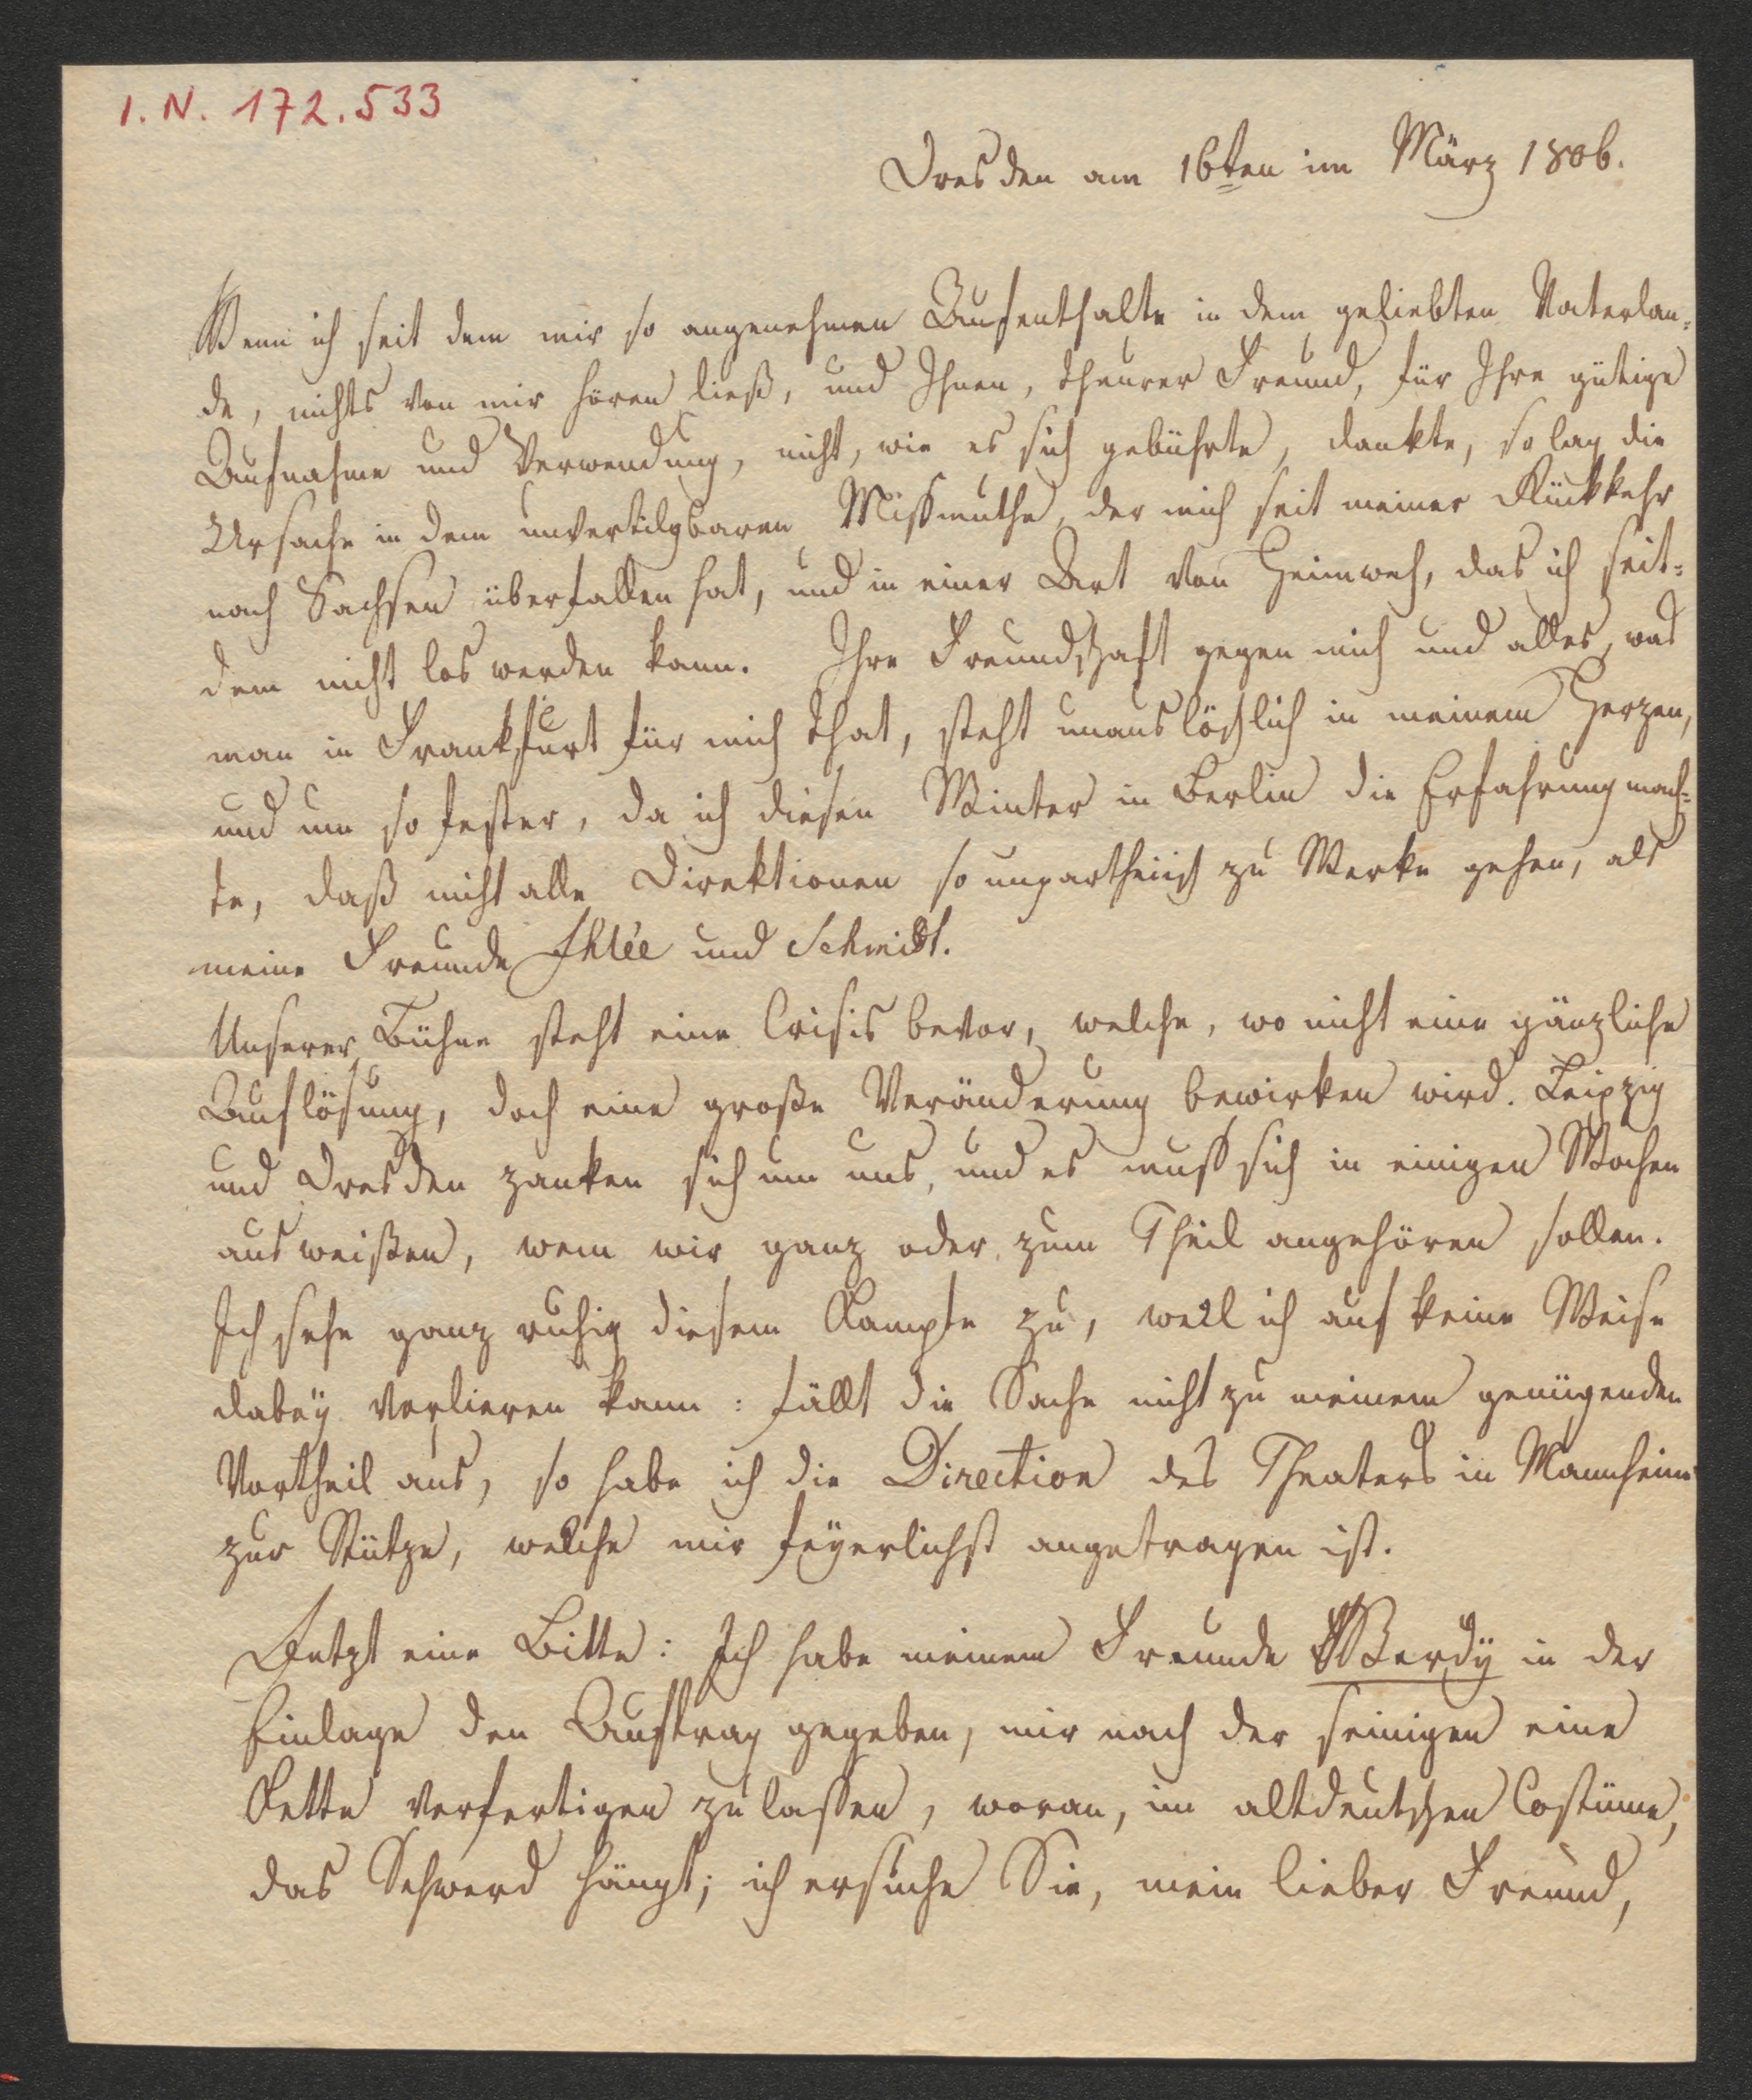 I. N. 172.533
Dresden am 16ten im März 1806.
Wenn ich seit dem mir so angenehmen Aufenthalte in dem geliebten Vaterlan=
de, nichts von mir hören ließ, und Ihnen, theurer Freund, für Ihre gütige
Aufnahme und Verwendung, nicht, wie es sich gebührte, dankte, so lag die
Ursache in dem unvertilgbaren Mißmuthe, der mich seit meiner Rückkehr
nach Sachsen überfallen hat, und in einer Art von Heimweh, das ich seit=
dem nicht los werden kann. Ihre Freundschaft gegen mich und alles, was
man in Frankfurt für mich that, steht unauslöschlich in meinem Herzen,
und um so fester, da ich diesen Winter in Berlin die Erfahrung mach=
te, daß nicht alle Direktionen so unpartheiisch zu Werke gehen, als
meine Freunde Ihlée und Schmidt.
Unserer Bühne steht eine Crisis bevor, welche, wo nicht eine gänzliche
Auflösung, doch eine große Veränderung bewirken wird. Leipzig
und Dresden zanken sich um uns, und es muß sich in einigen Wochen
ausweißen, wem wir ganz oder zum Theil angehören sollen.
Ich sehe ganz ruhig diesem Kampfe zu, weil ich auf keine Weise
dabey verlieren kann: fällt die Sache nicht zu meinem genügenden
Vortheil aus, so habe ich die Direction des Theaters in Mannheim
zur Stütze, welche mir feyerlichst angetragen ist.
Jetzt eine Bitte: Ich habe meinem Freunde Werdy in der
Einlage den Auftrag gegeben, mir nach der seinigen eine
Kette verfertigen zu lassen, woran, im altdeutschen Costüme,
das Schwerd hängt; ich ersuche Sie, mein lieber Freund,